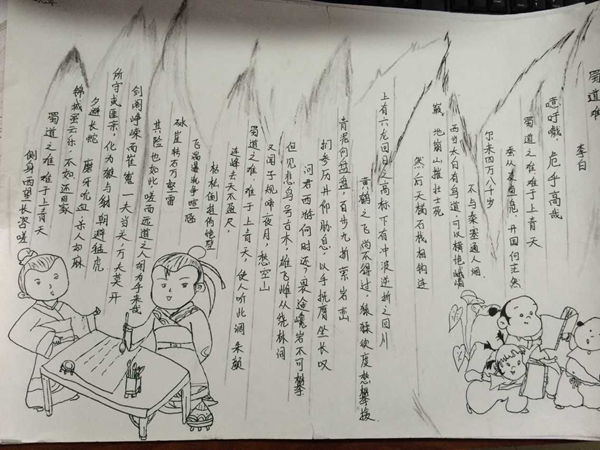 蜀道难
李白
噫吁嚱 危乎高哉
蜀道之难 难于上青天
蚕丛及鱼凫,开国何茫然
尔来四万八千岁
不与秦塞通人烟
西当太白有鸟道 可以横绝峨嵋
巅 地崩山摧壮士死
然后天梯石栈相钩连
上有六龙回日之高标 下有冲波逆折之回川
黄鹤之飞尚不得过,猿猱欲度愁攀援
青泥何盘盘,百步九折萦岩峦
扪参历井仰胁息,以手抚膺坐长叹
问君西游何时还?畏途巉岩不可攀
但见悲鸟号古木,雄飞雌从绕林间
又闻子规啼夜月,愁空山
蜀道之难难于上青天,使人听此凋朱颜
连峰去天不盈尺
枯松倒挂倚绝壁
飞湍瀑流争喧
砯崖转石万壑雷
其险也如此嗟而远道之人胡为乎来哉
剑阁峥嵘而崔嵬 一夫当关,万夫莫开
所守或匪亲,化为狼与豺 朝避猛虎
夕避长蛇 磨牙吮血 杀人如麻
锦城虽云乐 不如还家
蜀道之难 难于上青天
侧身西望长咨嗟